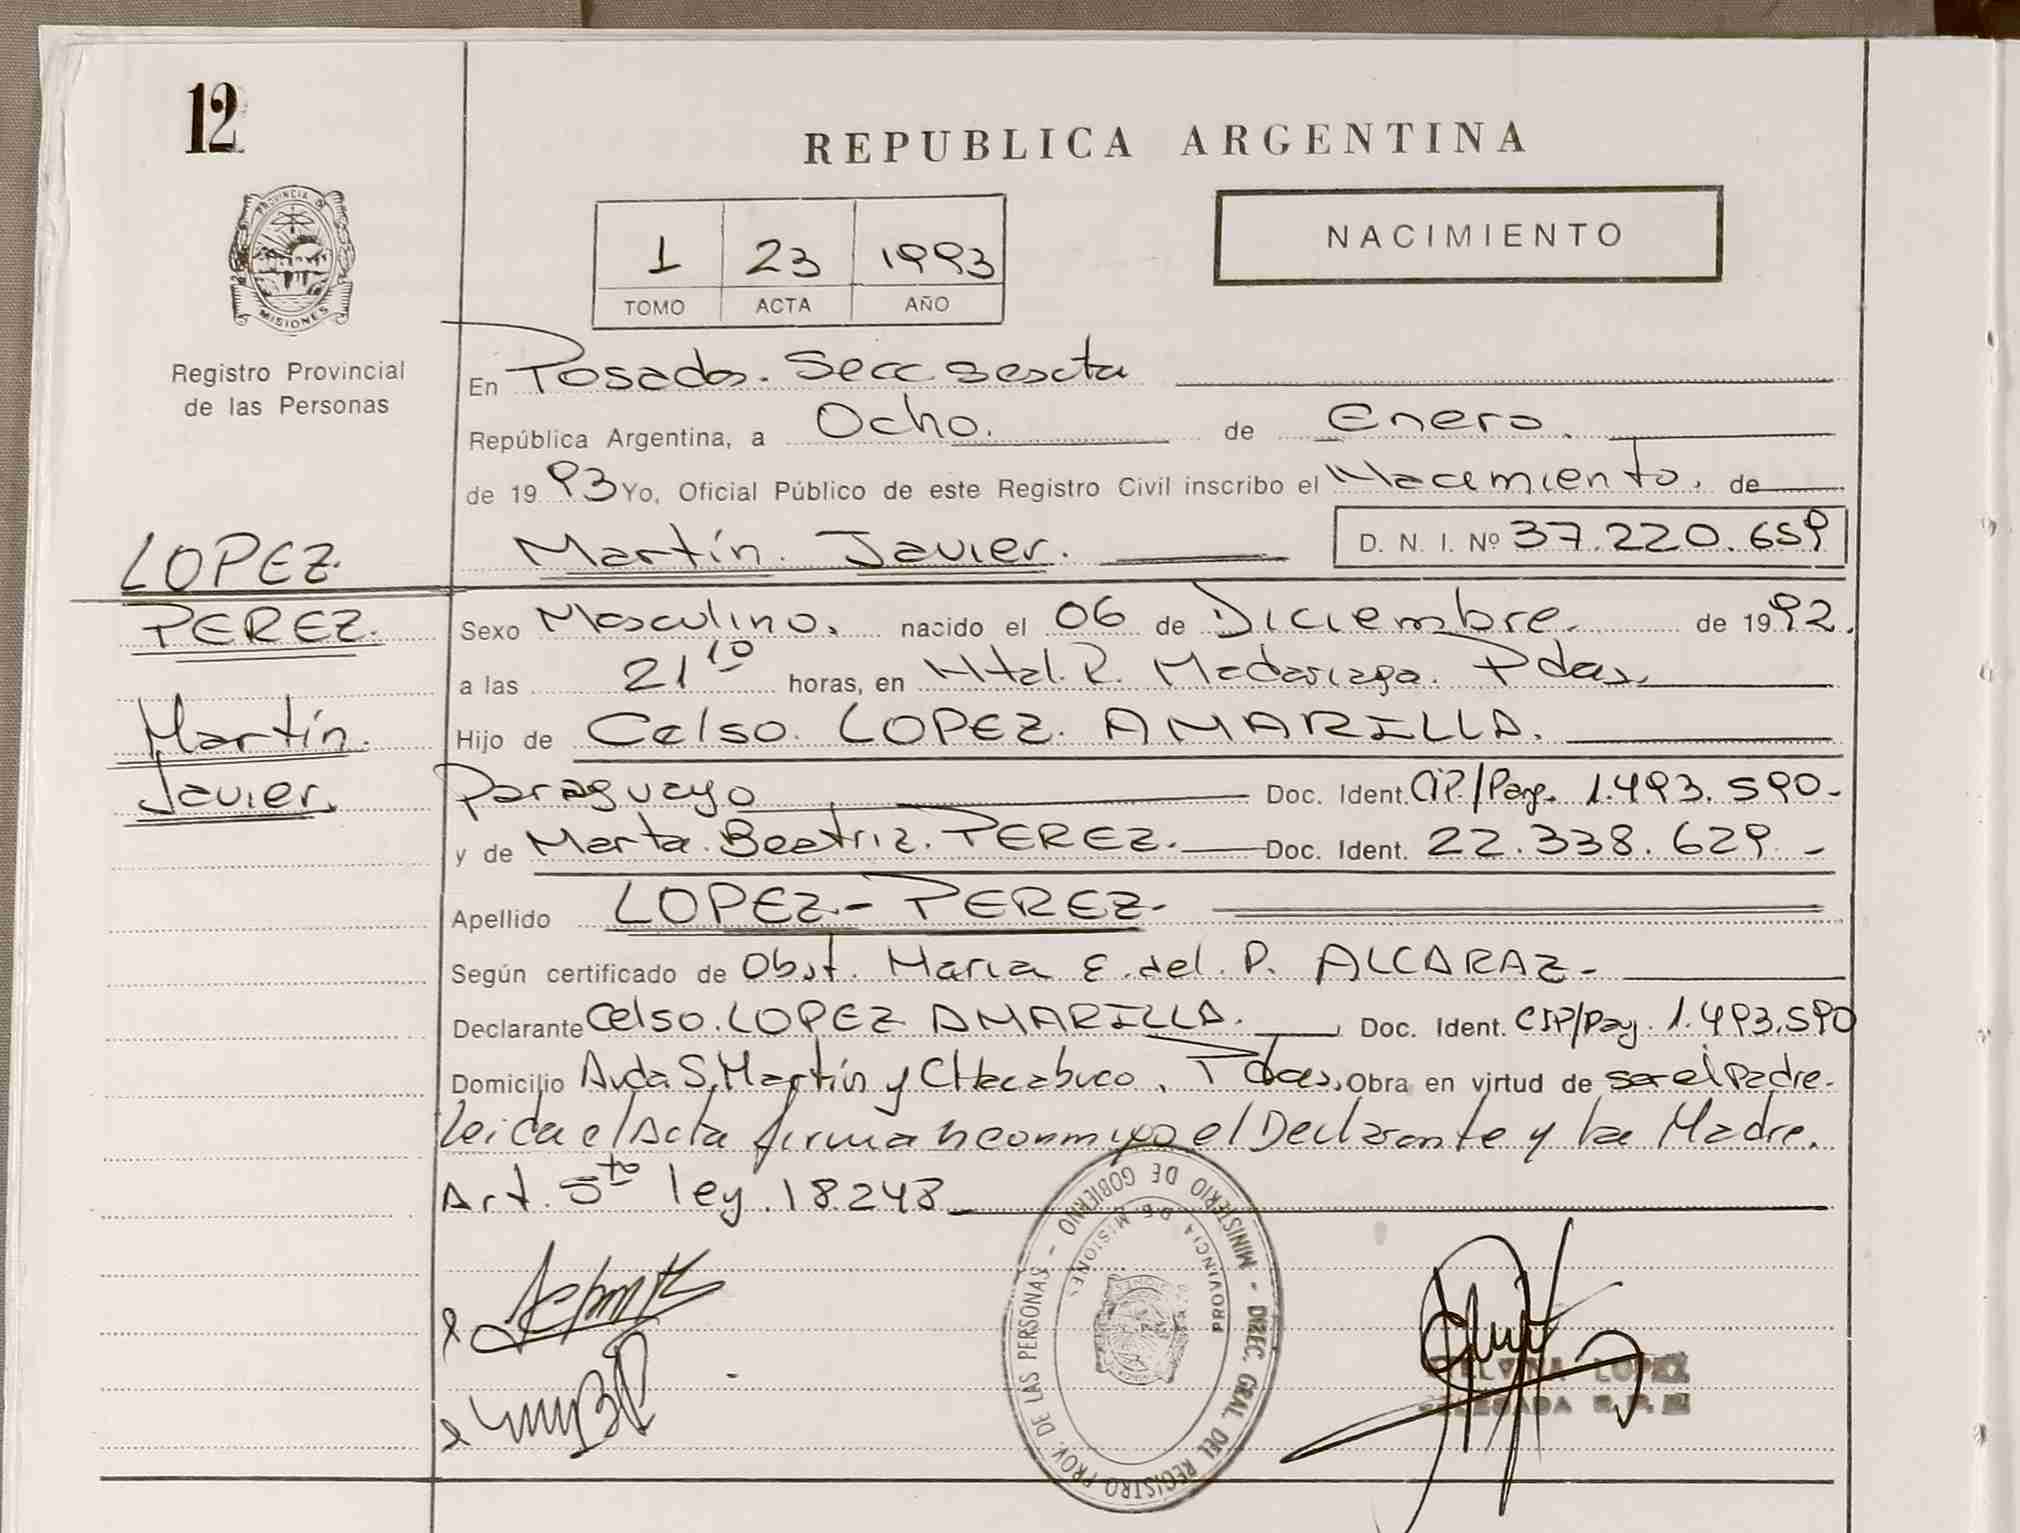 12
REPUBLICA ARGENTINA
PROVINCIA D
MISIONES
1 23 1993
TOMO ACTA AÑO
NACIMIENTO
Registro Provincial
de las Personas
En Posadas. Secc sescta
República Argentina, a Ocho. de Enero.
de 1993 Yo, Oficial Público de este Registro Civil inscribo el Nacimiento. de
Martín. Javier. D. N. I. Nº 37.220.659
LOPEZ.
PEREZ.
Martín.
Javier.
Sexo Masculino. nacido el 06 de Diciembre. de 1992.
a las 21 10 horas, en Htal. R. Madariaga. Pdas.
Hijo de Celso. LOPEZ. AMARILLA.
Paraguayo Doc. Ident. CIP/Parg. 1.493.590-
y de Marta. Beatriz. PEREZ. Doc. Ident. 22.338.629. -
Apellido LOPEZ - PEREZ-
Según certificado de Obst. Maria E. del. P. ALCARAZ-
Declarante Celso. LOPEZ AMARILLA. Doc. Ident. CIP/Pay. 1.493.590
Domicilio Avda S. Martín y CHacabuco. Pdas. Obra en virtud de ser el Padre.
Leida el Acta firman conmigo el Declarante y la Madre.
Art. 5to ley. 18.248
MINISTERIO DE GOBIERNO - DIREC. GRAL. DEL REGISTRO PROV. DE LAS PERSONAS -
PROVINCIA DE MISIONES
LOPEZ